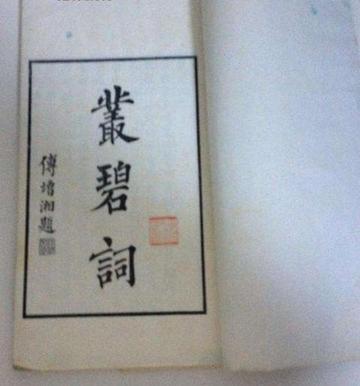 叢碧詞
傅增湘題